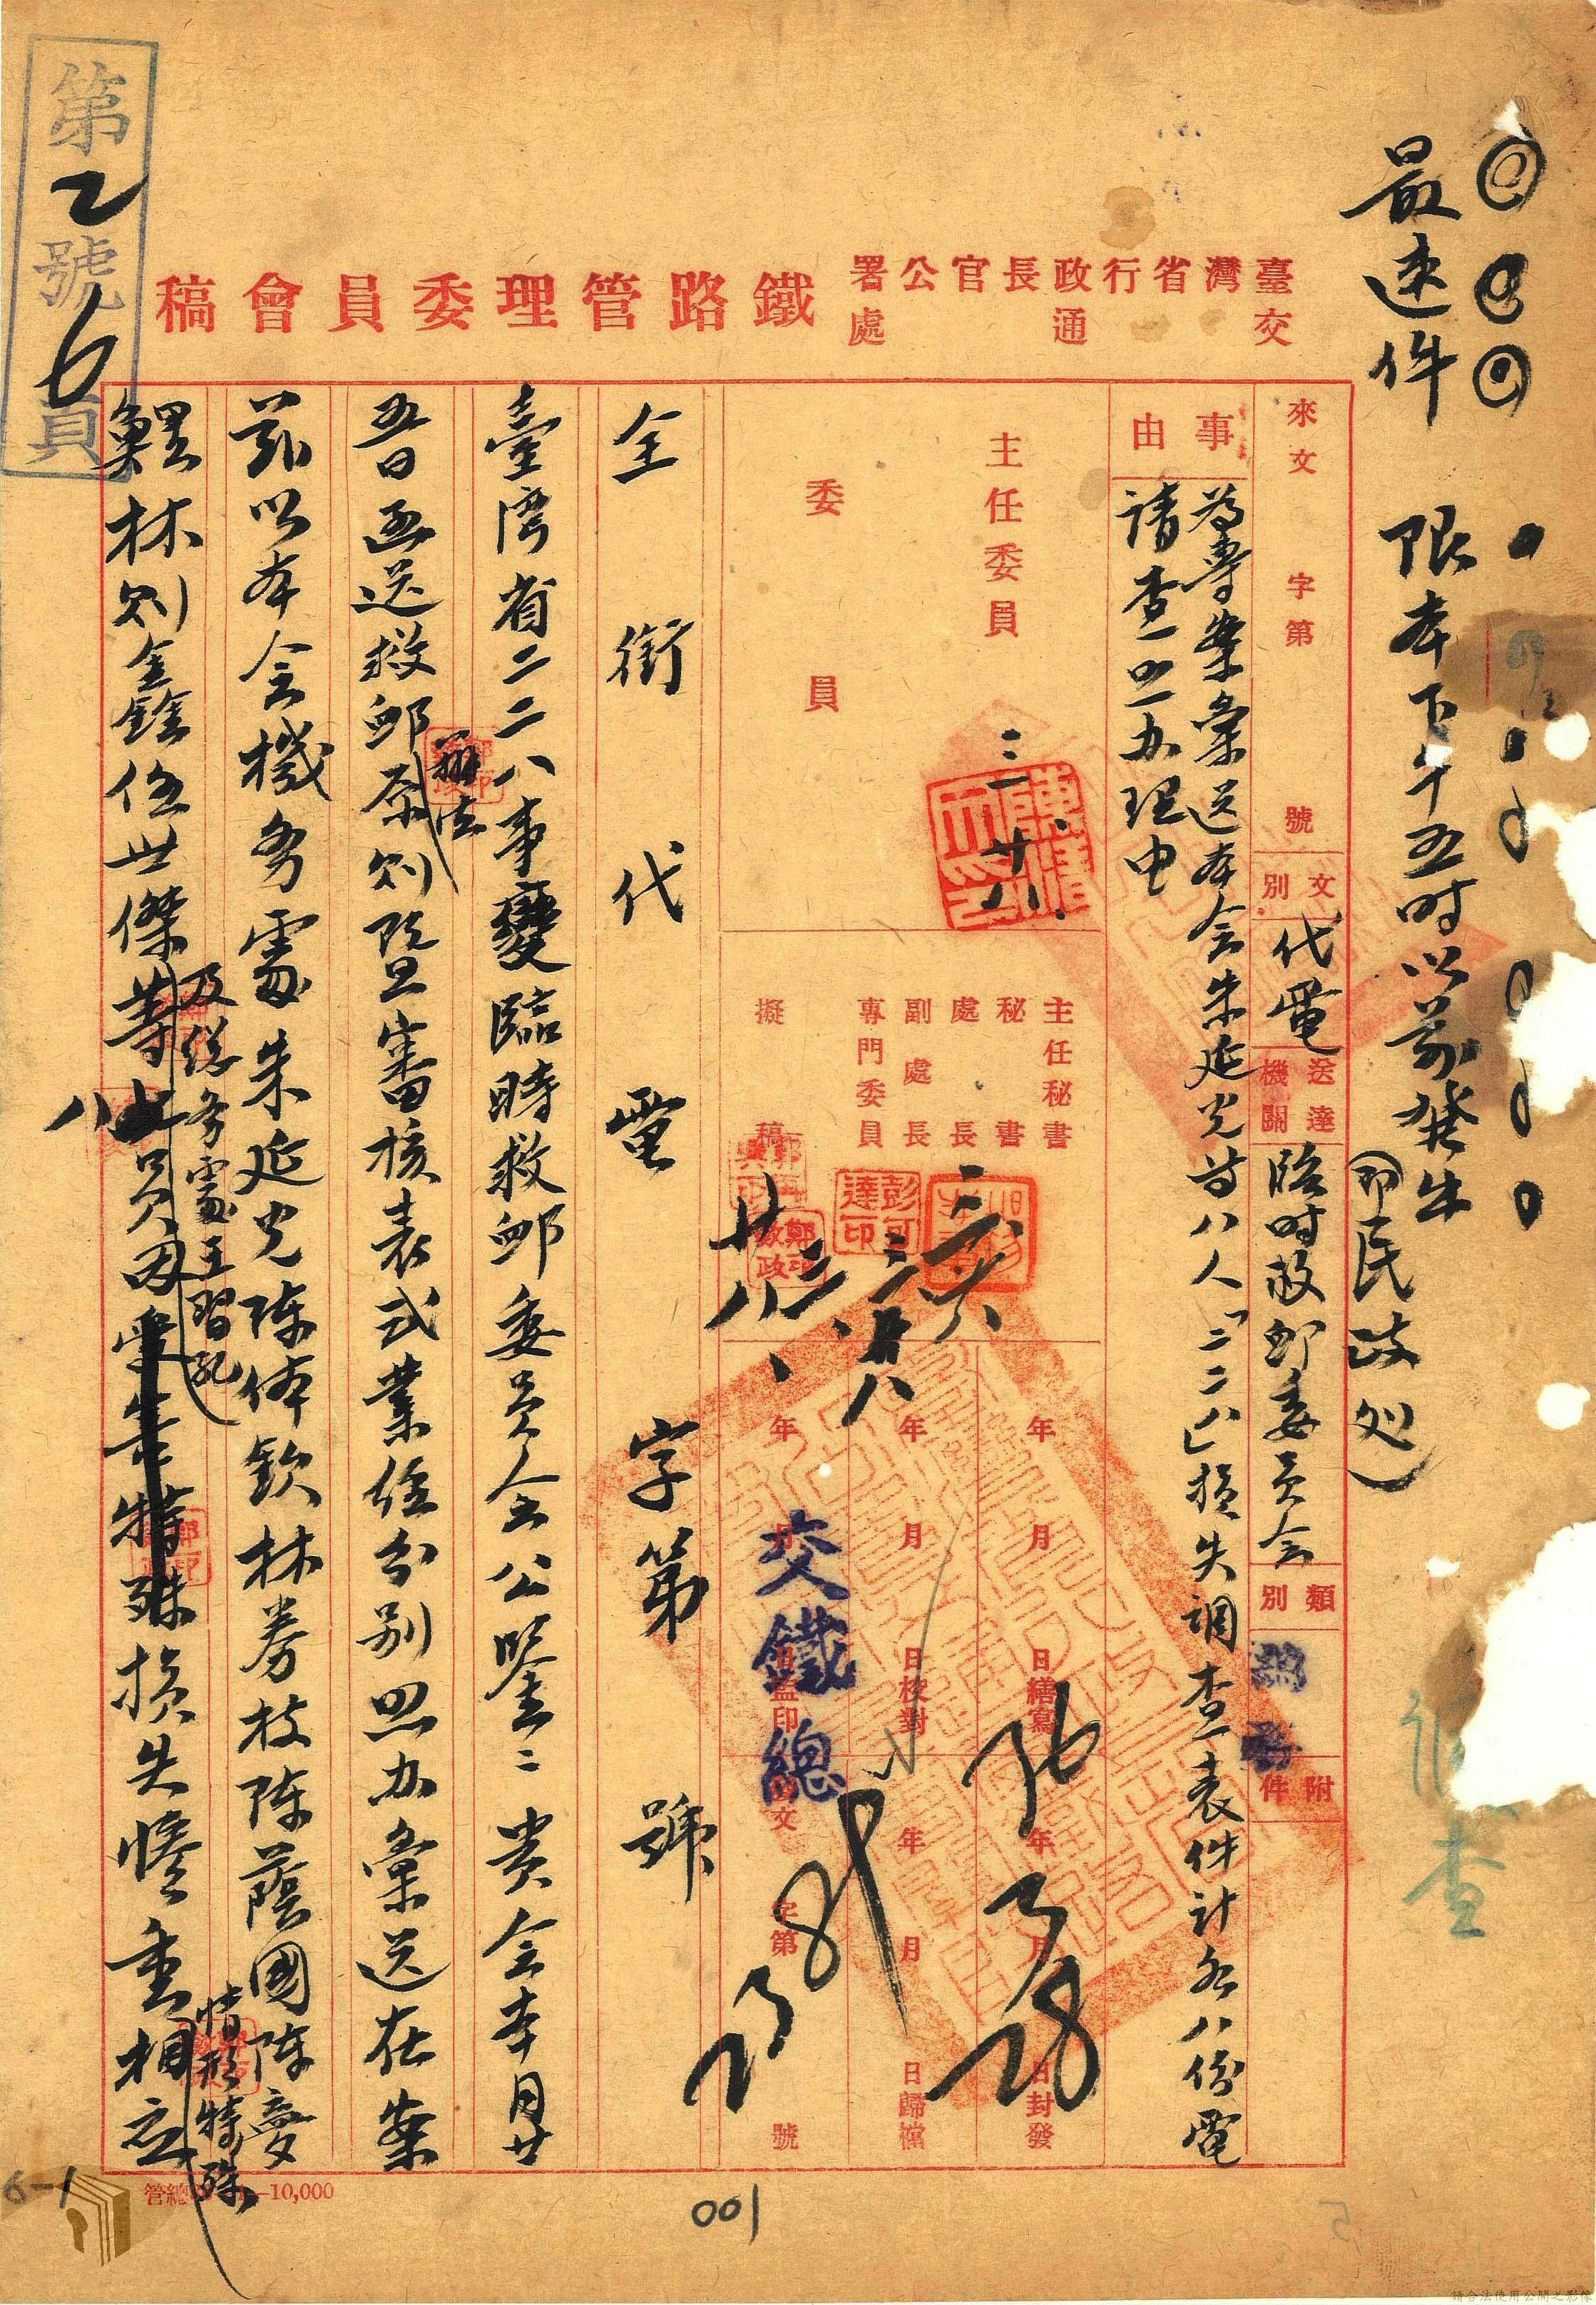 最速件 限本下午五时以前發出
(即民政处)
臺灣省行政長官公署
交通處
鐵路管理委員會稿
來文 字第 號
文別 代電
送達機關 臨时救卹委員会
類別
附件
事由
為尊案彙送本会朱延光等八人「二二八」損失調查表件計各八份電
請查照办理由
主任委員
三 廿八
委員
主任秘書
秘書
處長
副處長
專門委員
擬稿
年 月 日繕寫
年 月 日校對
年 月 日蓋印
年 月 日封發
年 月 日歸檔
發文 字第 號
交鐵總
全銜代電 字第 號
臺湾省二二八事變臨時救卹委員会公鑒：貴会本月廿
五日函送救卹原則暨審核表式業經分别照办彙送在案
辦法
茲以本会機务處朱延光陈体欽林劵枝陈蔭國陈愛
及總务處王習孔
鯤林則金銓伍世傑等七員因受害特殊損失慘重相应
八
情形特殊
第2號6頁
查
管總 —10,000
001
6-1
請合法使用公開之影像